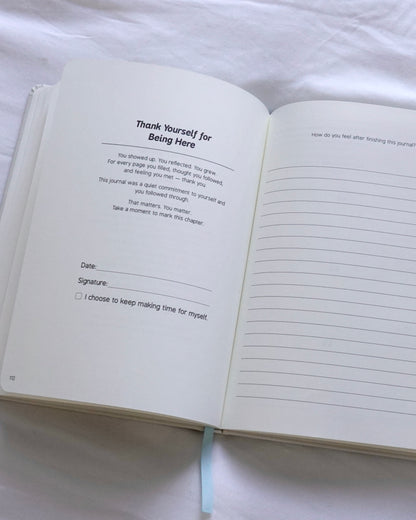 Thank Yourself for
Being Here
You showed up. You reflected. You grew.
For every page you filled, thought you followed,
and feeling you met — thank you.
This journal was a quiet commitment to yourself and
you followed through.
That matters. You matter.
Take a moment to mark this chapter.
Date:
Signature:
I choose to keep making time for myself.
How do you feel after finishing this journal?